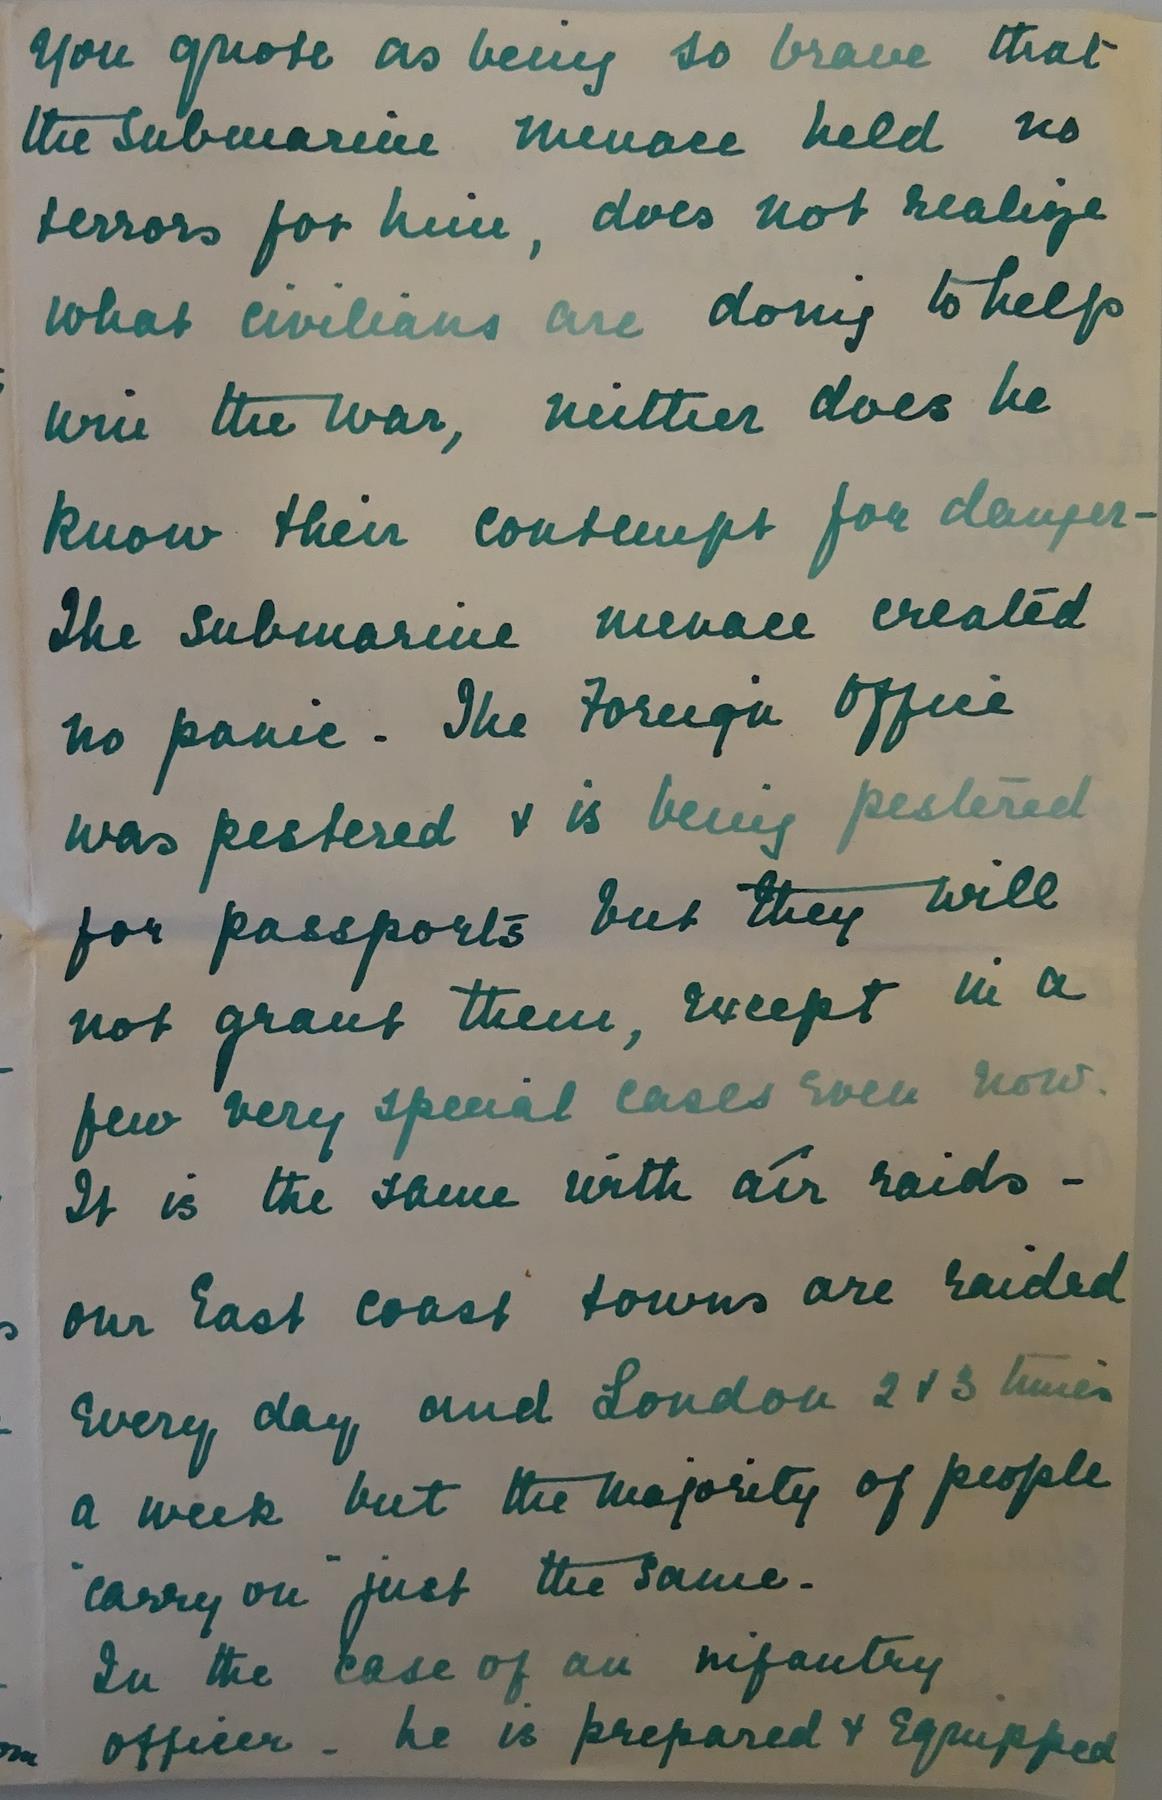 you quote as being so brave that
the submarine menace held no
terrors for him, does not realize
what civilians are doing to help
win the war, neither does he
know their contempt for danger-
The submarine menace created
no panic. The Foreign Office
was pestered & is being pestered
for passports but they will
not grant them, except in a
few very special cases even now.
It is the same with air raids -
our East coast towns are raided
every day and London 2 & 3 times
a week but the majority of people
"carry on" just the same.
In the case of an infantry
officer - he is prepared & equipped